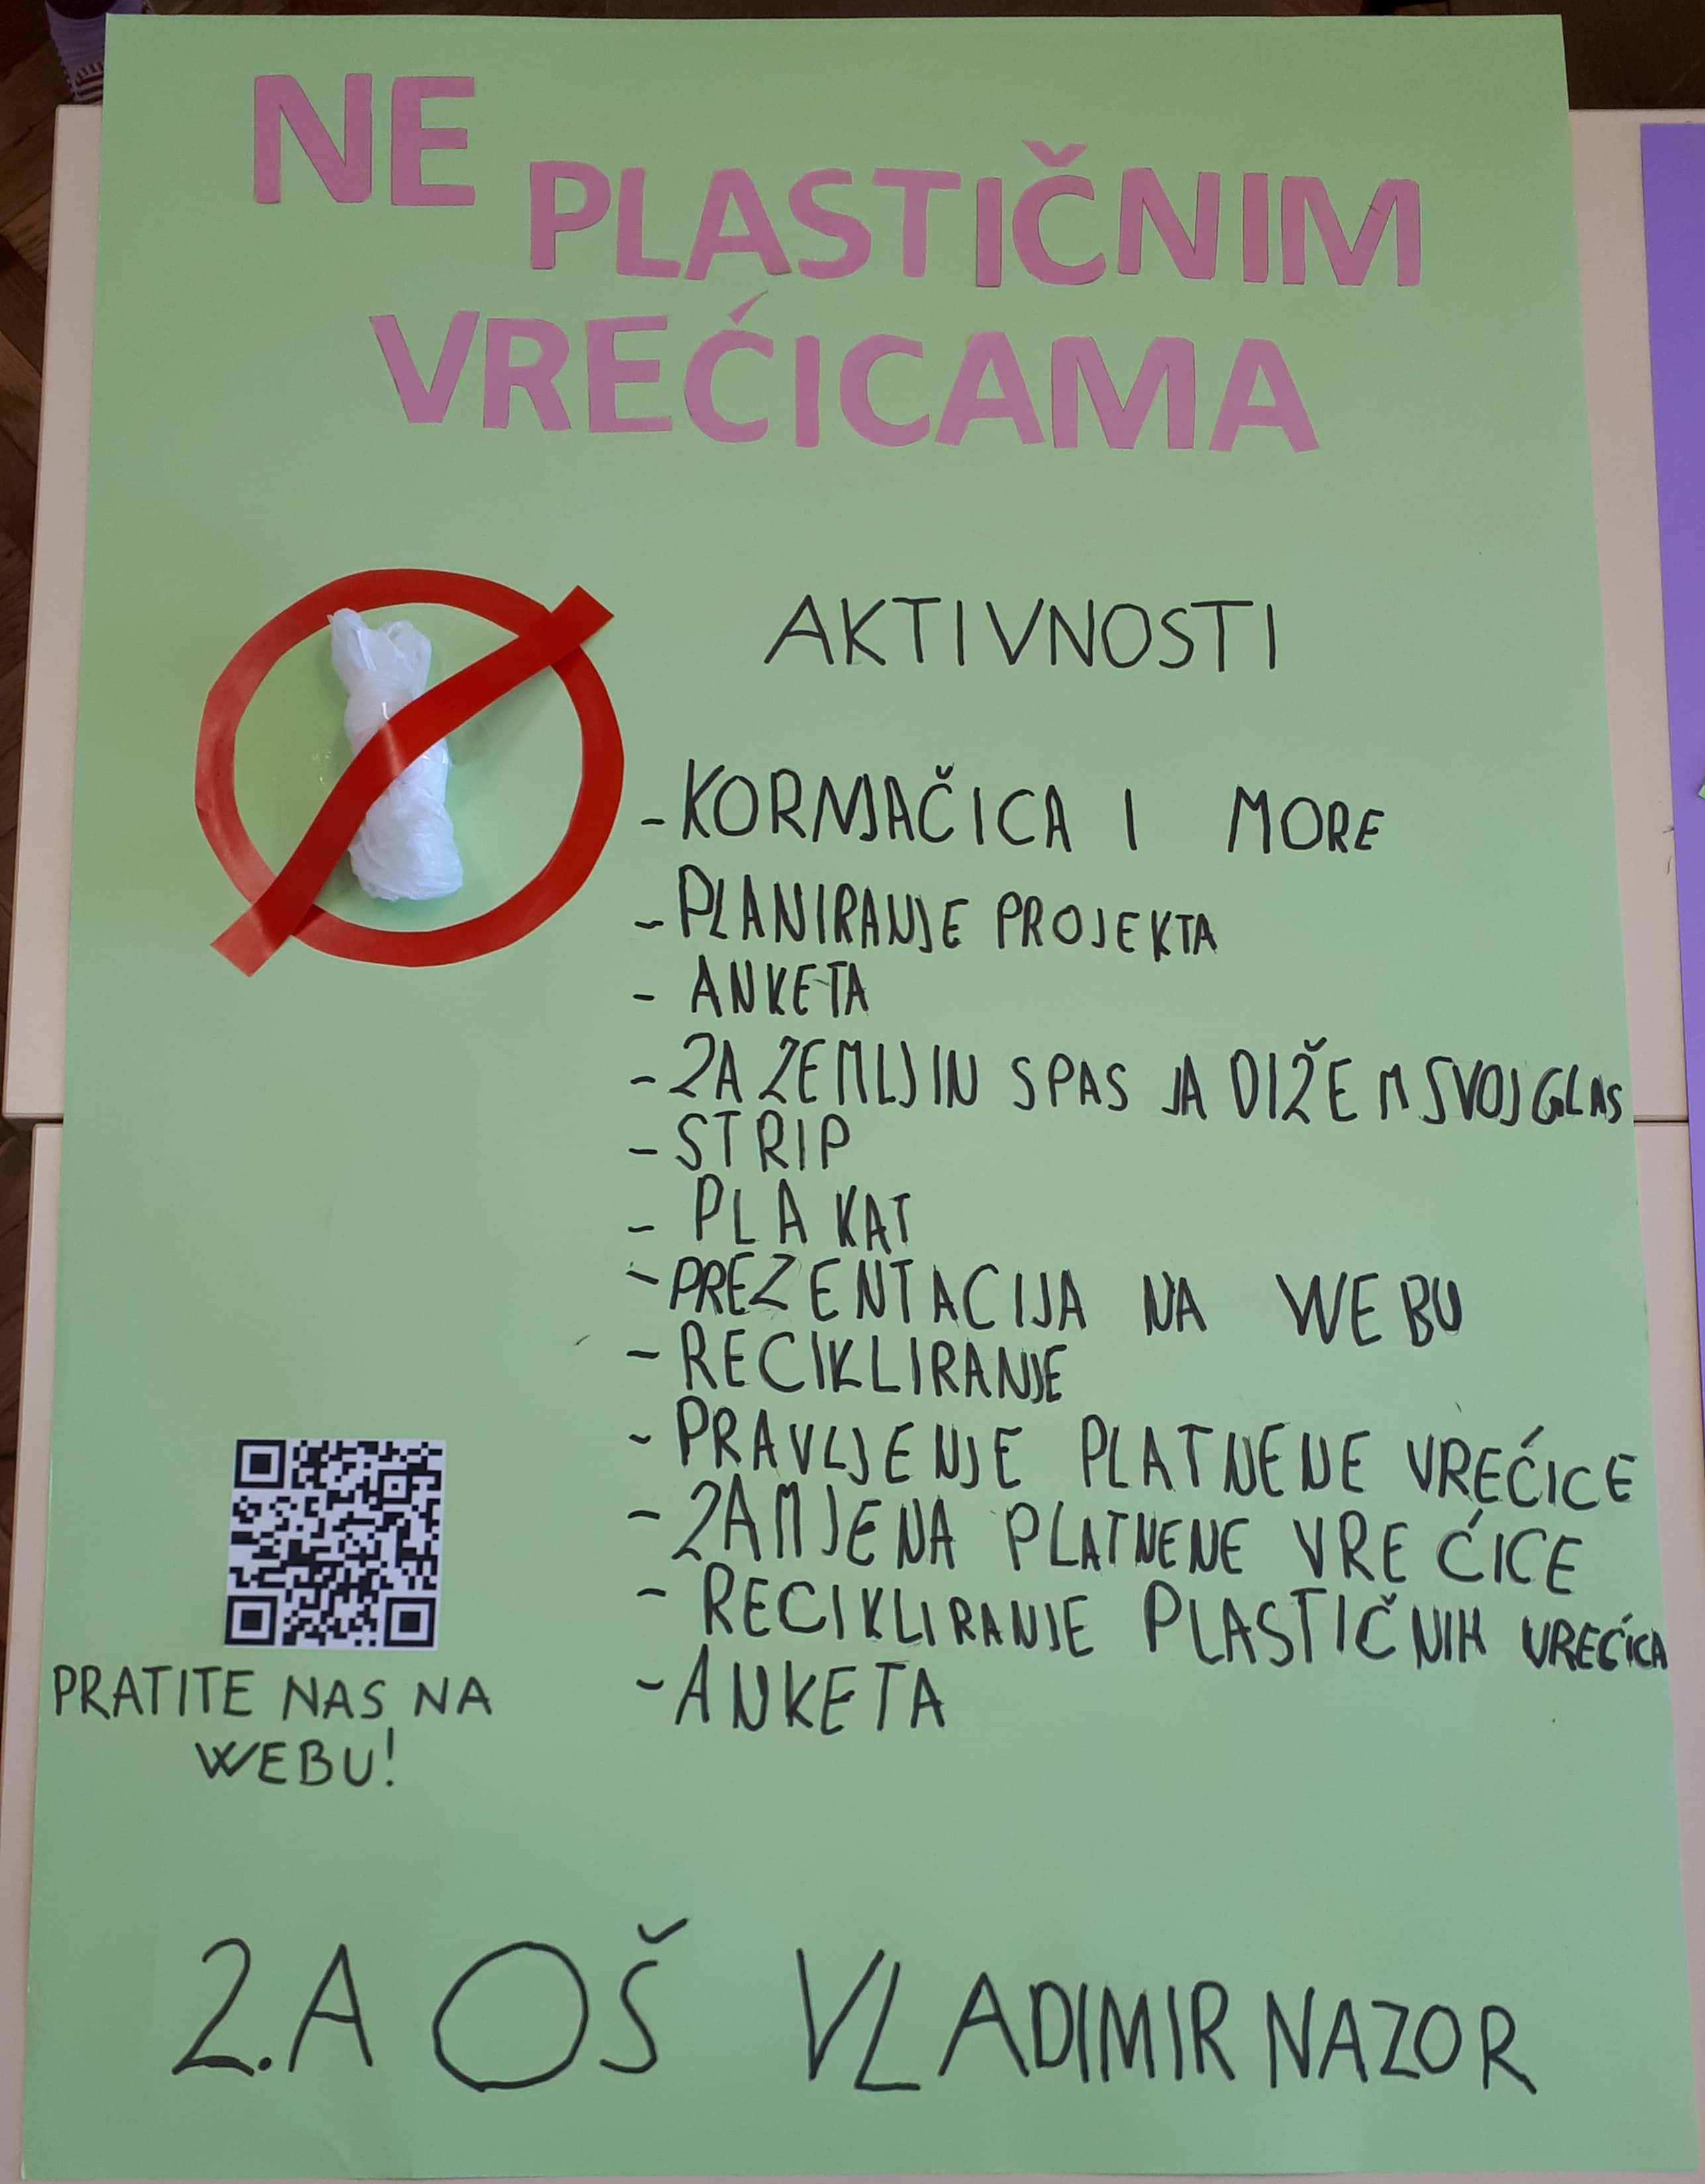 NE
PLASTIČNIM
VREĆICAMA
AKTIVNOSTI
- KORNJAČICA I MORE
- PLANIRANJE PROJEKTA
- ANKETA
- ZA ZEMLJIN SPAS JA DIŽEM SVOJ GLAS
- STRIP
- PLAKAT
- PREZENTACIJA NA WEBU
- RECIKLIRANJE
- PRAVLJENJE PLATNENE VREĆICE
- ZAMJENA PLATNENE VREĆICE
- RECIKLIRANJE PLASTIČNIH VREĆICA
- ANKETA
PRATITE NAS NA
WEBU!
2.A OŠ VLADIMIR NAZOR